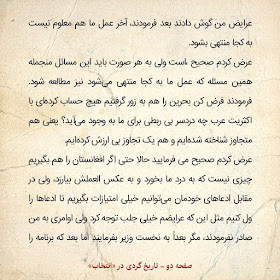 عرایض من گوش دادند بعد فرمودند، آخر عمل ما هم معلوم نیست
به کجا منتهی بشود.
عرض کردم صحیح ،است ولی به هر صورت باید این مسائل منجمله
همین مسئله که عمل ما به کجا منتهی می‌شود نیز مطالعه شود.
فرمودند فرض کن بحرین را هم به زور گرفتیم هیچ حساب کرده‌ای با
اکثریت عرب چه دردسر بی ربطی برای ما به وجود می‌آید؟ یعنی هم
متجاوز شناخته شده‌ایم و هم یک تجاوز بی ارزش کرده‌ایم.
عرض کردم صحیح می فرمایید حالا حتی اگر افغانستان را هم بگیریم
چیزی نیست که به درد ما بخورد و به عکس العملش بیارزد، ولی در
مقابل ادعاهای خودمان می‌توانیم خیلی امتیازات بگیریم تا ادعاها را
ول کنیم مثل این که عرایضم خیلی جلب توجه کرد ولی اوامری به من
صادر نفرمودند، مگر بعداً به نخست وزیر بفرمایند اما بعد که برنامه را
صفحه دو - تاریخ گردی در «انتخاب»